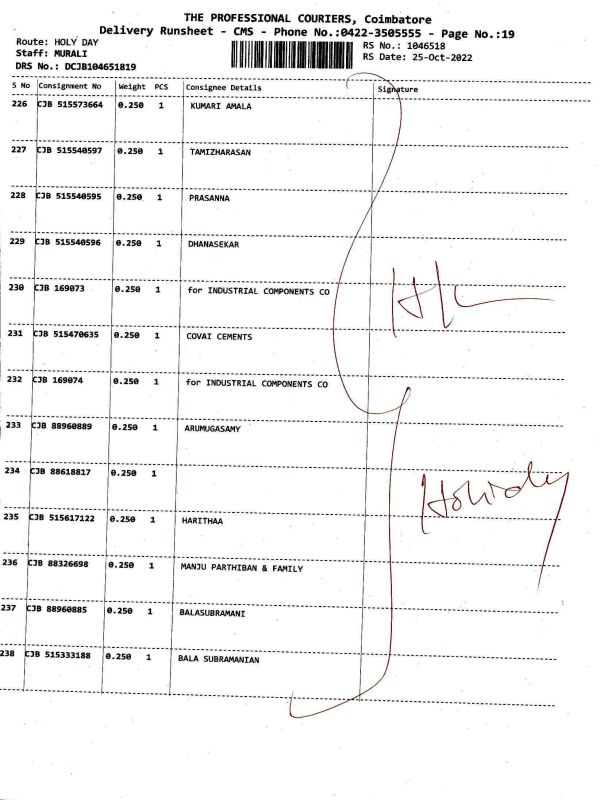 THE PROFESSIONAL COURIERS, Coimbatore
Delivery Runsheet - CMS - Phone No.:0422-3505555 - Page No.:19
Route: HOLY DAY
Staff: MURALI
DRS No.: DCJB104651819
RS No.: 1046518
RS Date: 25-Oct-2022
S No Consignment No Weight PCS Consignee Details Signature
226 CJB 515573664 0.250 1 KUMARI AMALA
227 CJB 515540597 0.250 1 TAMIZHARASAN
228 CJB 515540595 0.250 1 PRASANNA
229 CJB 515540596 0.250 1 DHANASEKAR
230 CJB 169073 0.250 1 for INDUSTRIAL COMPONENTS CO
231 CJB 515470635 0.250 1 COVAI CEMENTS
232 CJB 169074 0.250 1 for INDUSTRIAL COMPONENTS CO
233 CJB 88960889 0.250 1 ARUMUGASAMY
234 CJB 88618817 0.250 1
235 CJB 515617122 0.250 1 HARITHAA
236 CJB 88326698 0.250 1 MANJU PARTHIBAN & FAMILY
237 CJB 88960885 0.250 1 BALASUBRAMANI
238 CJB 515333188 0.250 1 BALA SUBRAMANIAN
Holiday